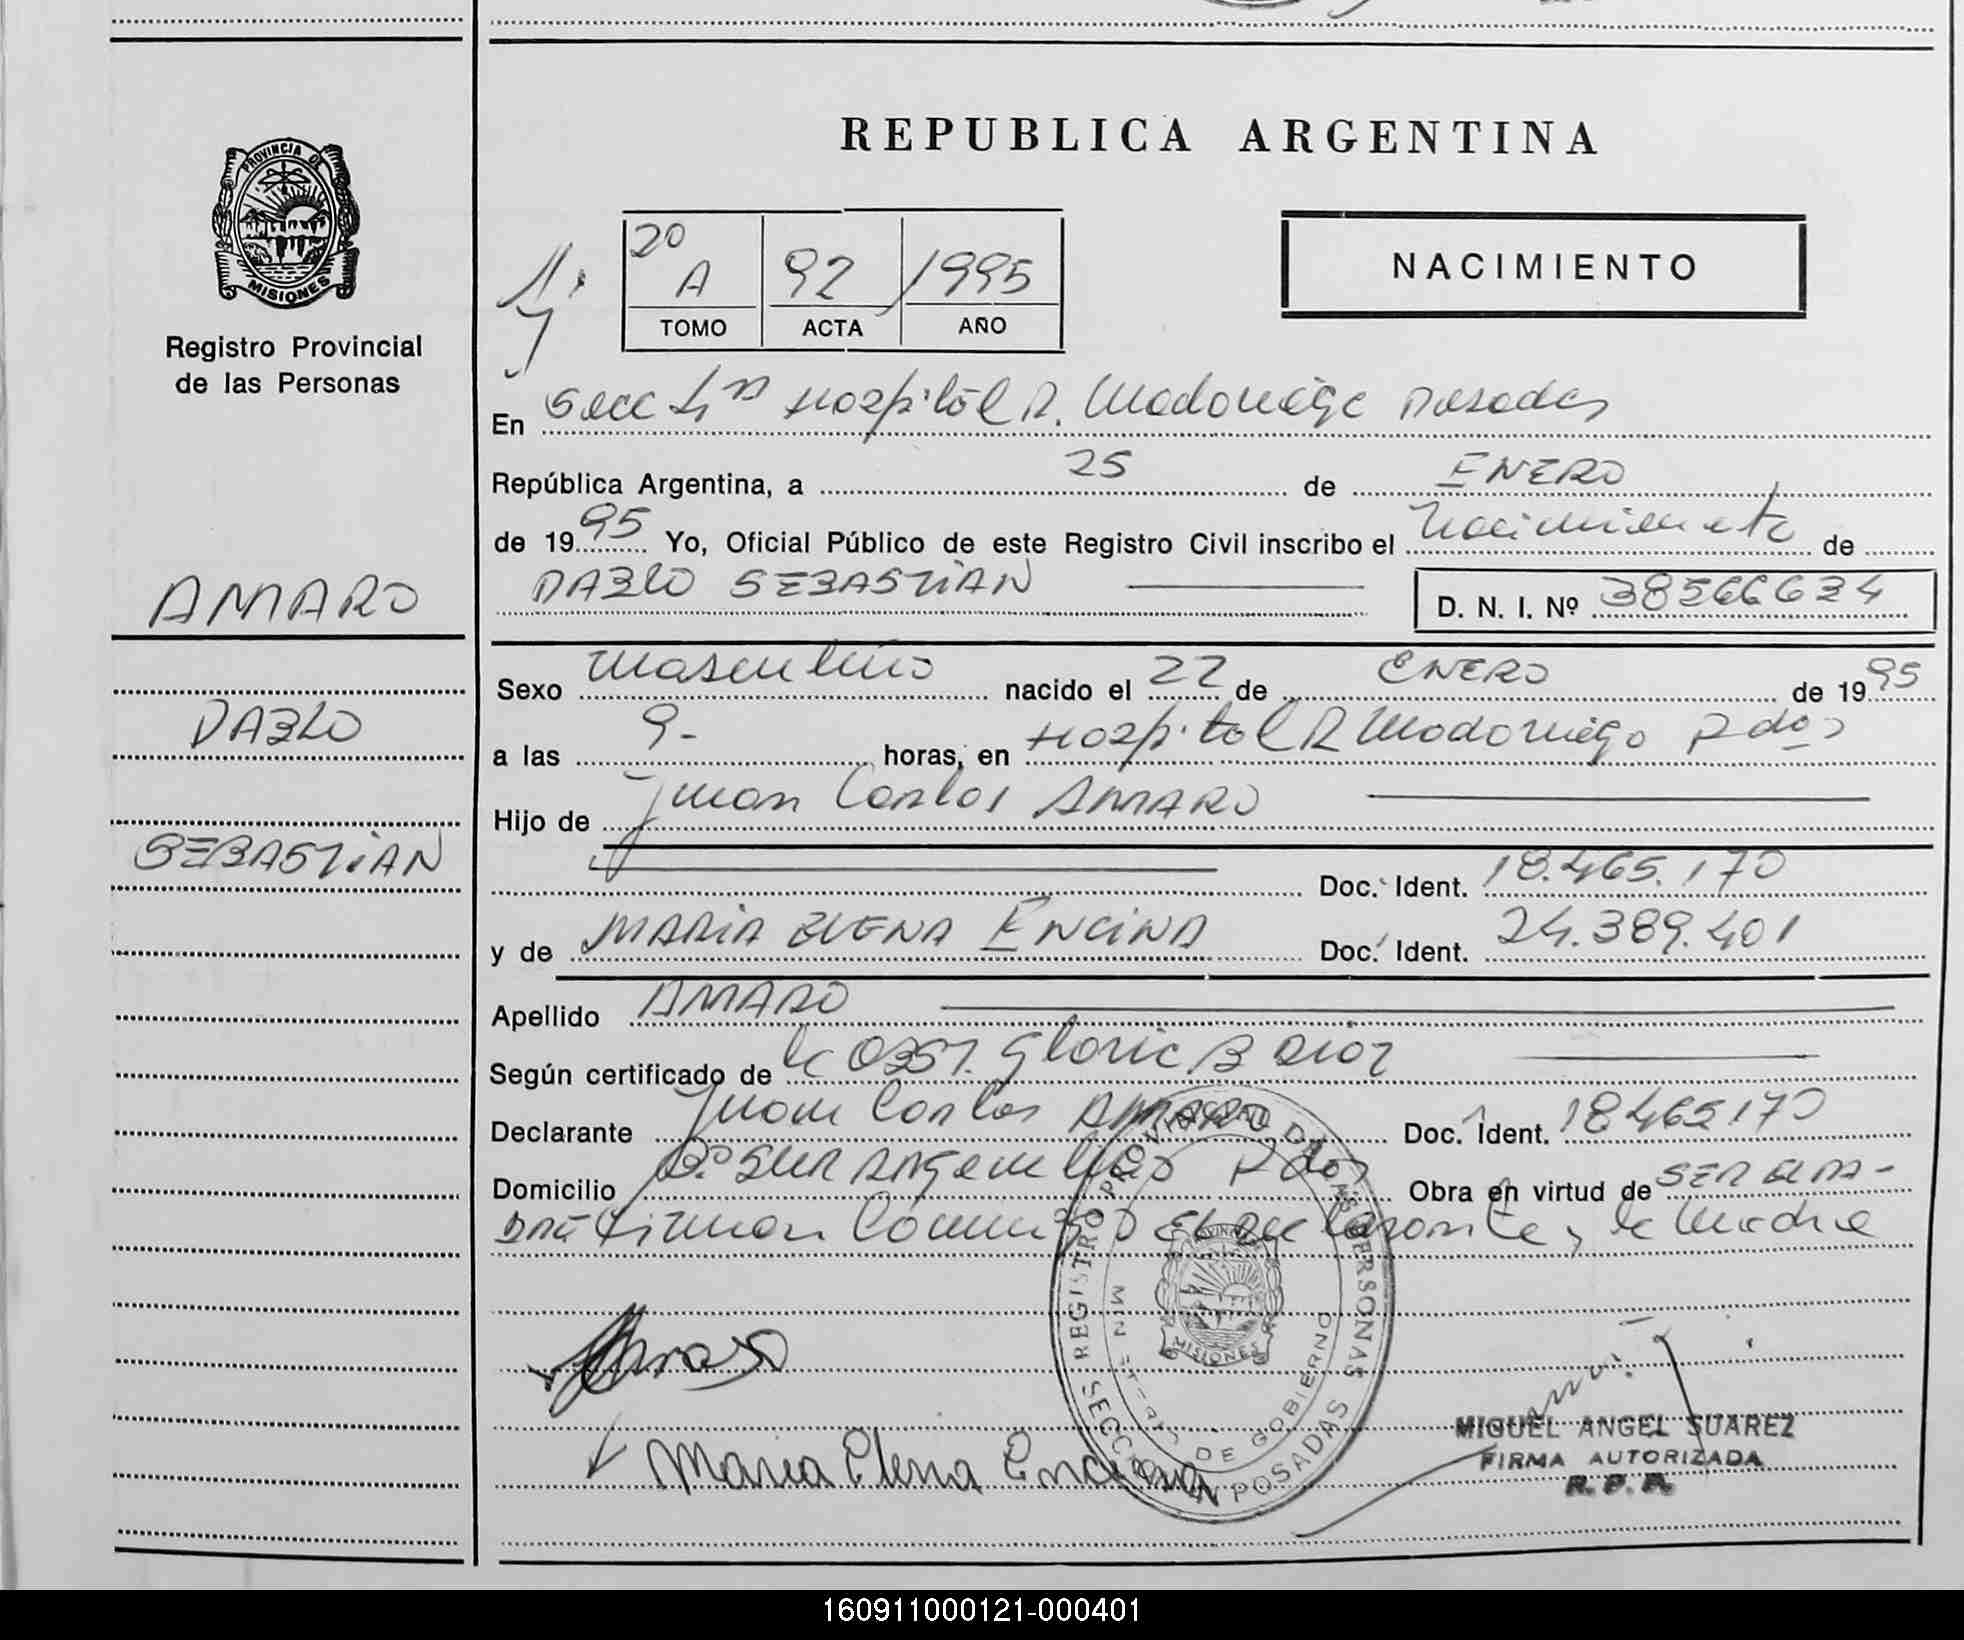 REPUBLICA ARGENTINA
PROVINCIA DE
MISIONES
Registro Provincial
de las Personas
AMARO
PABLO
SEBASTIAN
2º
A 92 1995
TOMO ACTA AÑO
NACIMIENTO
En Secc 4ta Hospital R. Madariaga Posadas
República Argentina, a 25 de ENERO
de 1995 Yo, Oficial Público de este Registro Civil inscribo el Nacimiento de
PABLO SEBASTIAN D. N. I. Nº 38566634
Sexo Masculino nacido el 22 de ENERO de 1995
a las 9- horas, en Hospital R Madariaga Pdas
Hijo de Juan Carlos AMARO
Doc. Ident. 18.465.170
y de MARIA ELENA ENCINA Doc. Ident. 24.389.401
Apellido AMARO
Según certificado de la OBST. Gloria B Dioz
Declarante Juan Carlos AMARO Doc. Ident. 18465170
Domicilio Bº SUR Argentino Pdas Obra en virtud de SER EL PA-
DRE Firman Conmigo El declarante y la Madre
REGISTRO PROVINCIAL DE LAS PERSONAS
MINISTERIO DE GOBIERNO
SECCION POSADAS
PROVINCIA DE
MISIONES
Amaro
Maria Elena Encina
MIGUEL ANGEL SUAREZ
FIRMA AUTORIZADA
R. P. P.
160911000121-000401